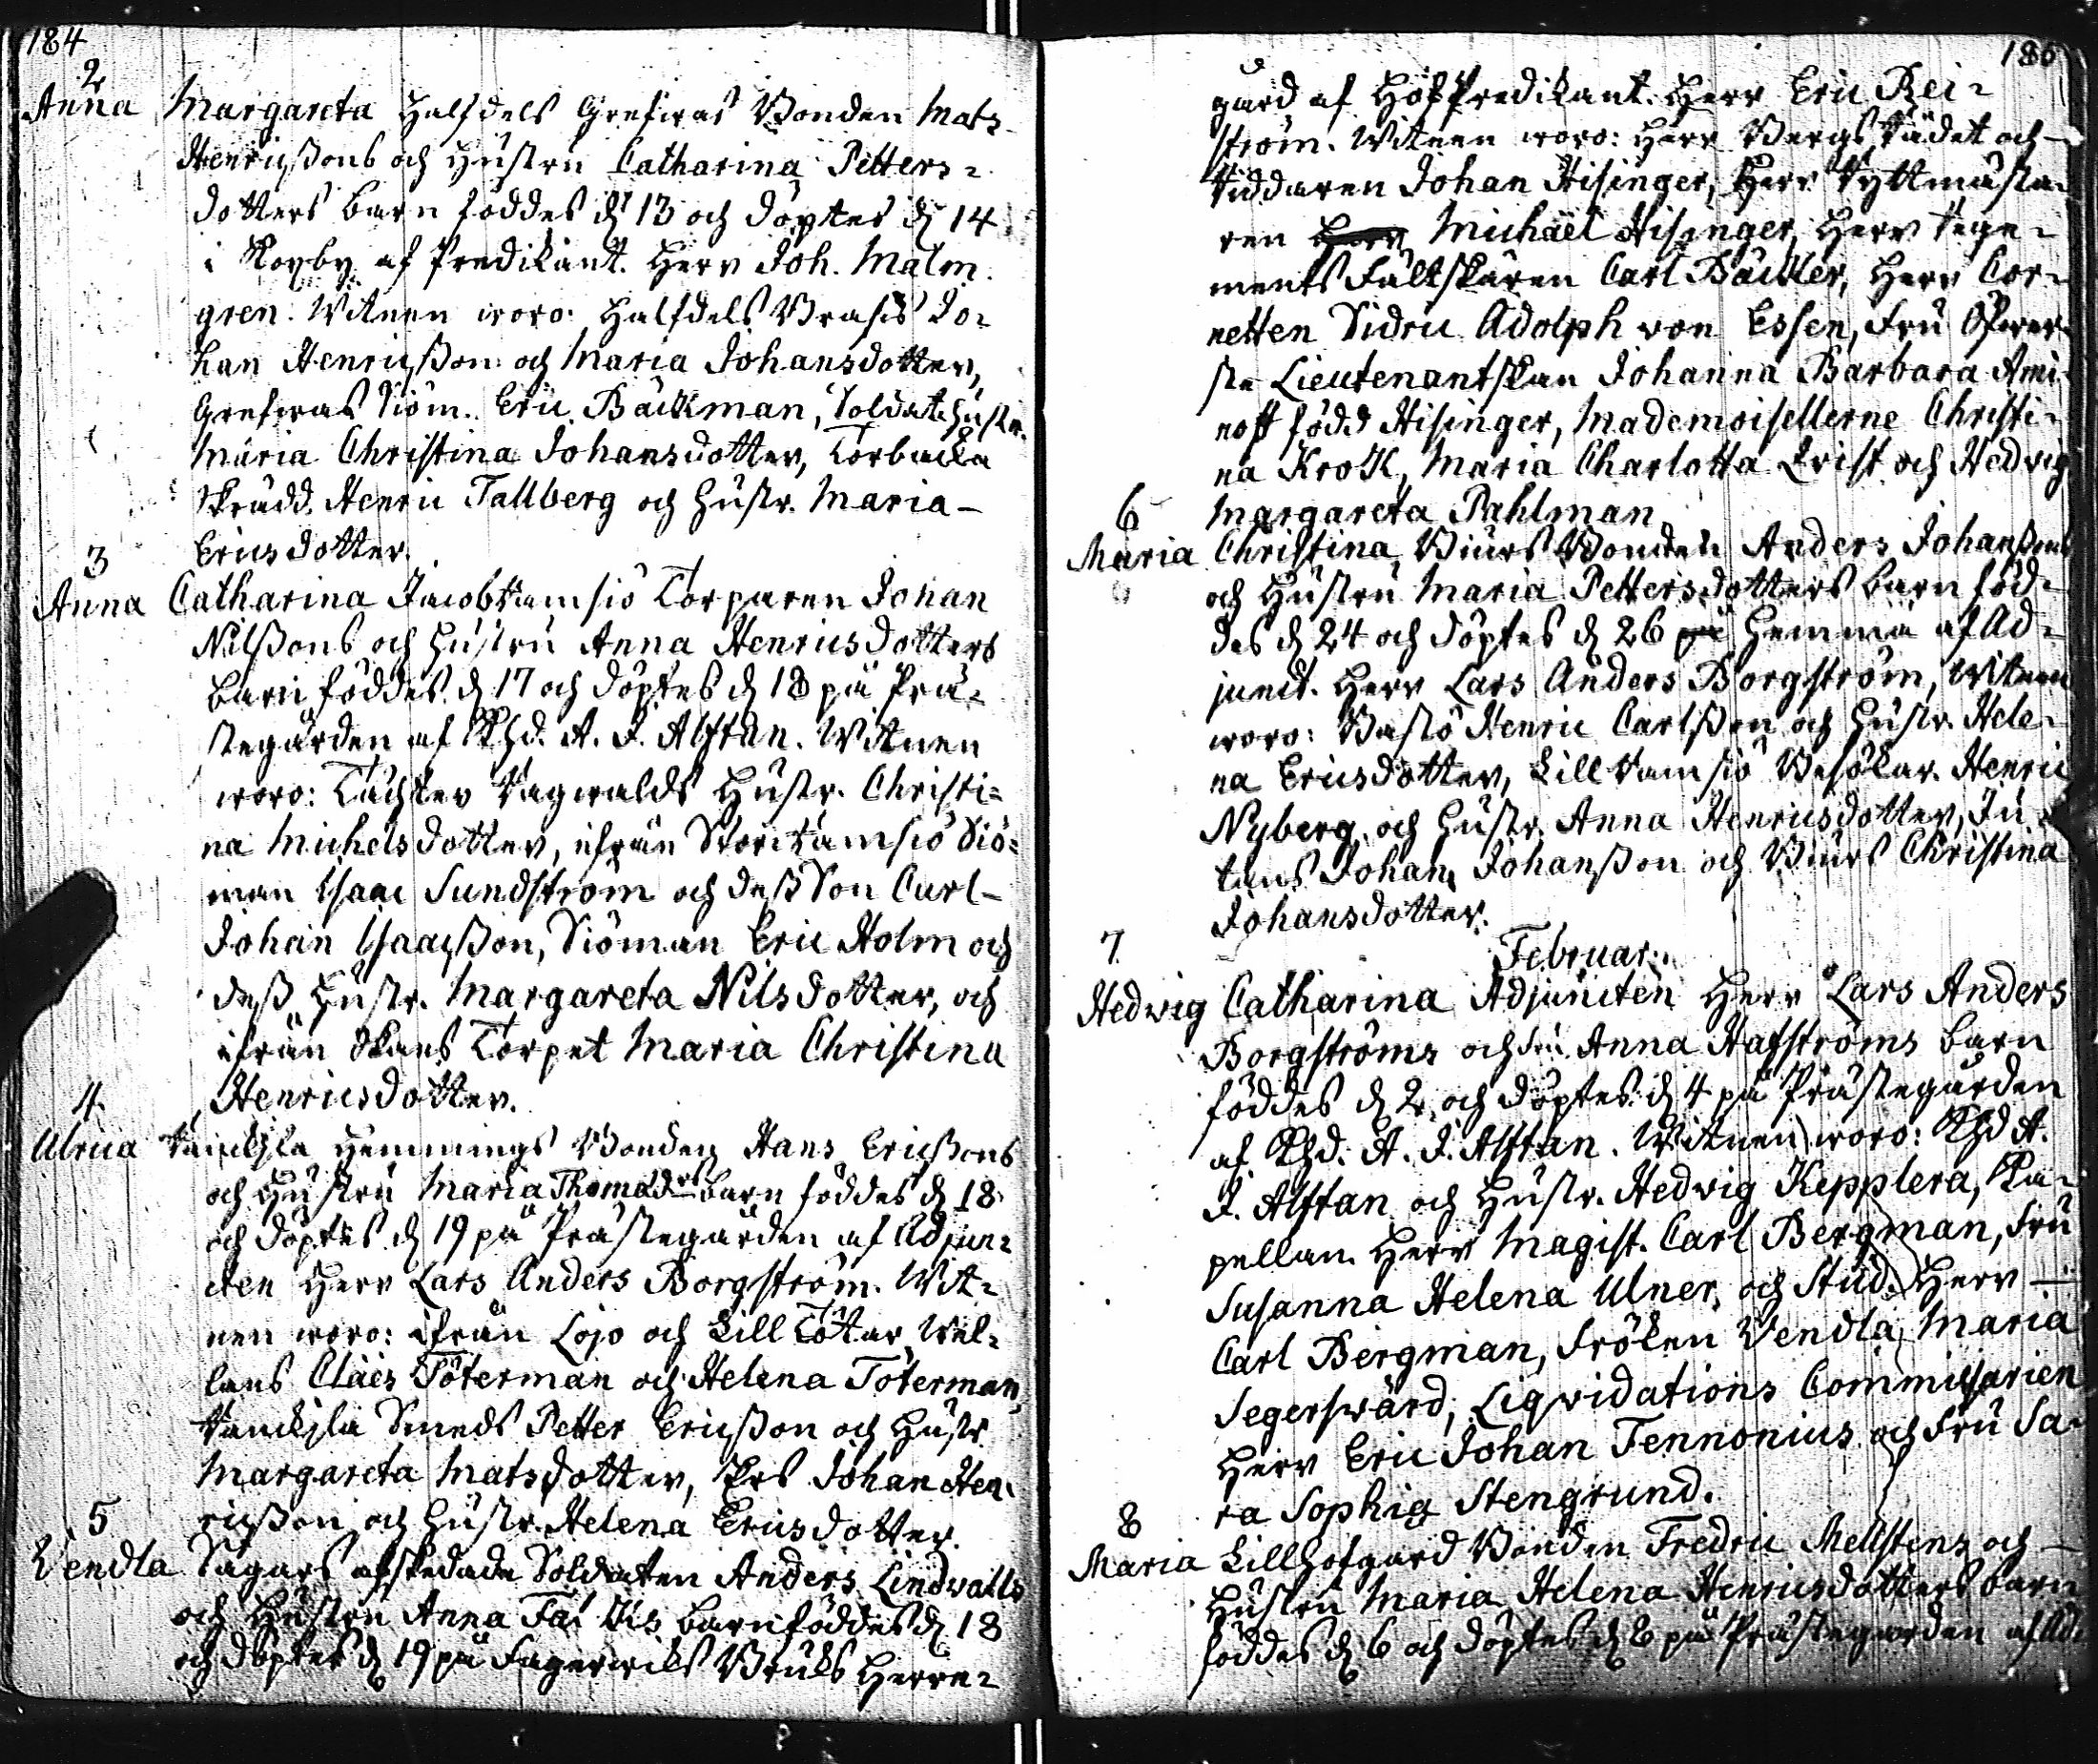 184
2
Anna Margareta Halfdels Grefwas Bonden Mats
Henricßons och Hustru Catharina Petters-
dotters barn föddes d 13 och döptes d 14
i af Predikant. Herr Joh. Malm-
gren. Witnen woro: Halfdels Jo-
han Henricßon och Maria Johansdotter,
Grefwas Siöm. Eric Bäckman, Soldat. Hustr.
Maria Christina Johansdotter, Torbacka
Skrädd. Henric Tallberg och Hustr. Maria -
Ericsdotter.
3
Anna Catharina Jacobramsiö Torparen Johan
Nilßons och Hustru Anna Henricsdotters
barn föddes d 17 och döptes d 18 på Prä-
stegården af Khd. A. J. Alftan. Witnen
woro: Täckter Ragwalds Hustr. Christi-
na Michelsdotter, ifrån Storramsiö Siö-
man Isaac Sundström och deß Son Carl -
Johan Isaacßon, Siöman Eric Holm och
deß Hustr. Margareta Nilsdotter, och
ifrån Skans Torpet Maria Christina
Henricsdotter.
4
Ulrica Hemmings Bonden Hans Ericßons
och Hustru Maria Thomædr barn föddes d 18
och döptes d 19 på Prästegården af Adjunc-
ten Herr Lars Anders Borgström. Wit-
nen woro: ifrån Lojo och Lill Tötar, Wel-
lans Claës Töterman och Helena Töterman,
Smeds Petter Ericßon och Hustr.
Margareta Matsdotter, Johan Hen-
ricßon och Hustr. Helena Ericsdotter.
5
Vendla Sågars afskedade Soldaten Anders Lindwalls
och Hustru Anna barn föddes d 18
och döptes d 19 på Fagerwiks Bruks Herre-
185
gård af Hofpredikant. Herr Eric Rei-
ström. Witnen woro: Herr Bergs Rådet och -
Riddaren Johan Hisinger, Herr Ryttmästa-
ren Herr Michaël Hisinger, Herr Rege-
ments Fältskären Carl Bäcker, Herr Cor-
netten Didric Adolph von Essen, Fru Öfwer-
ste Lieutenantskan Johanna Barbara Ami-
noff född Hisinger, Mademoisellerne Christi-
na Krok, Maria Charlotta Qvist och Hedvig
Margareta Pahlman.
6
Maria Christina, Biürs Bonden Anders Johanßons
och Hustru Maria Pettersdotters barn föd-
des d 24 och döptes d 26 på hemma af Ad-
junct. Herr Lars Anders Borgström, Witnen
woro: Basiö Henric Carlßon och Hustr. Hele-
na Ericsdotter, Lill Ramsiö Besökar. Henric
Nyberg, och Hustr. Anna Henricsdotter, Ju-
tans Johan Johanßon och Biürs Christina
Johansdotter.
7
Februar:
Hedwig Catharina Adjuncten Herr Lars Anders
Borgströms och Fru Anna Hafströms barn
föddes d 2, och döptes d 4 på Prästegården
af Khd. A. J. Alftan. Witnen woro: Khd A.
J. Alftan och Hustr. Hedvig Kepplera, Ka-
pellan. Herr Magist. Carl Bergman, Fru
Susanna Helena Ulner, och Stud. Herr -
Carl Bergman, Fröken Vendla Maria
Segerswärd, Liqvidations Commissarien
Herr Eric Johan Tennonius och Fru Sa-
ra Sophia Stengrund.
8
Maria Lillhofgård Bonden Fredric Mellstens och -
Hustru Maria Helena Henricsdotters barn
föddes d 6 och döptes d 8 på Prästegården af Ad-